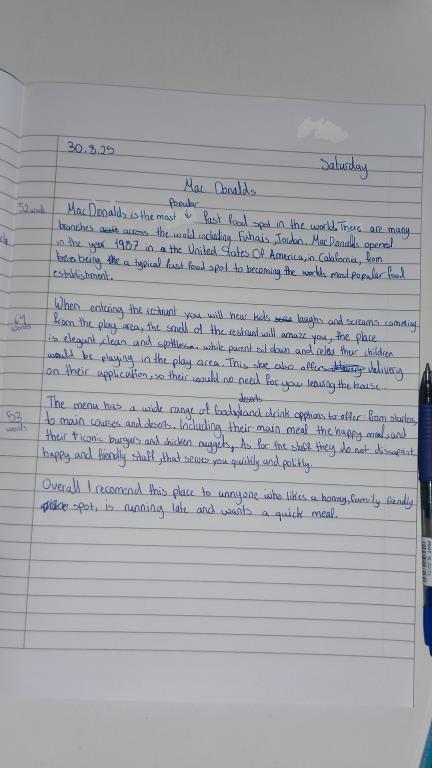 30.8.25
Saturday
Mac Donalds
popular
52 words
MacDonalds is the most ↓ fast food spot in the world. There are many
branches across the wold including Fuhais, Jordan. MacDonalds opened
in the year 1987 in the United States Of America, in Calafornia, from
being a typical fast food spot to becoming the worlds most popular food
establishment.
64 words
When entering the restrunt you will hear kids laughs and screams comming
from the play area, the smell of the restrunt will amaze you, the place
is elegant, clean and spotless. while parent sit down and relax ther children
would be playing in the play area. This also offers delivery
on their application, so their would no need for you leaving the house.
deserts
53 words
The menu has a wide range of foods and drink opptions to offer from starters,
to main courses and deserts. Including their main meal the happy meal, and
their iconic burgurs and chicken nuggets, As for the staff they do not dissapoint
happy and friendly staff, that serves you quickly and politly.
Overall I recomend this place to annyone who likes a homey, family friendly
spot, is running late and wants a quick meal.